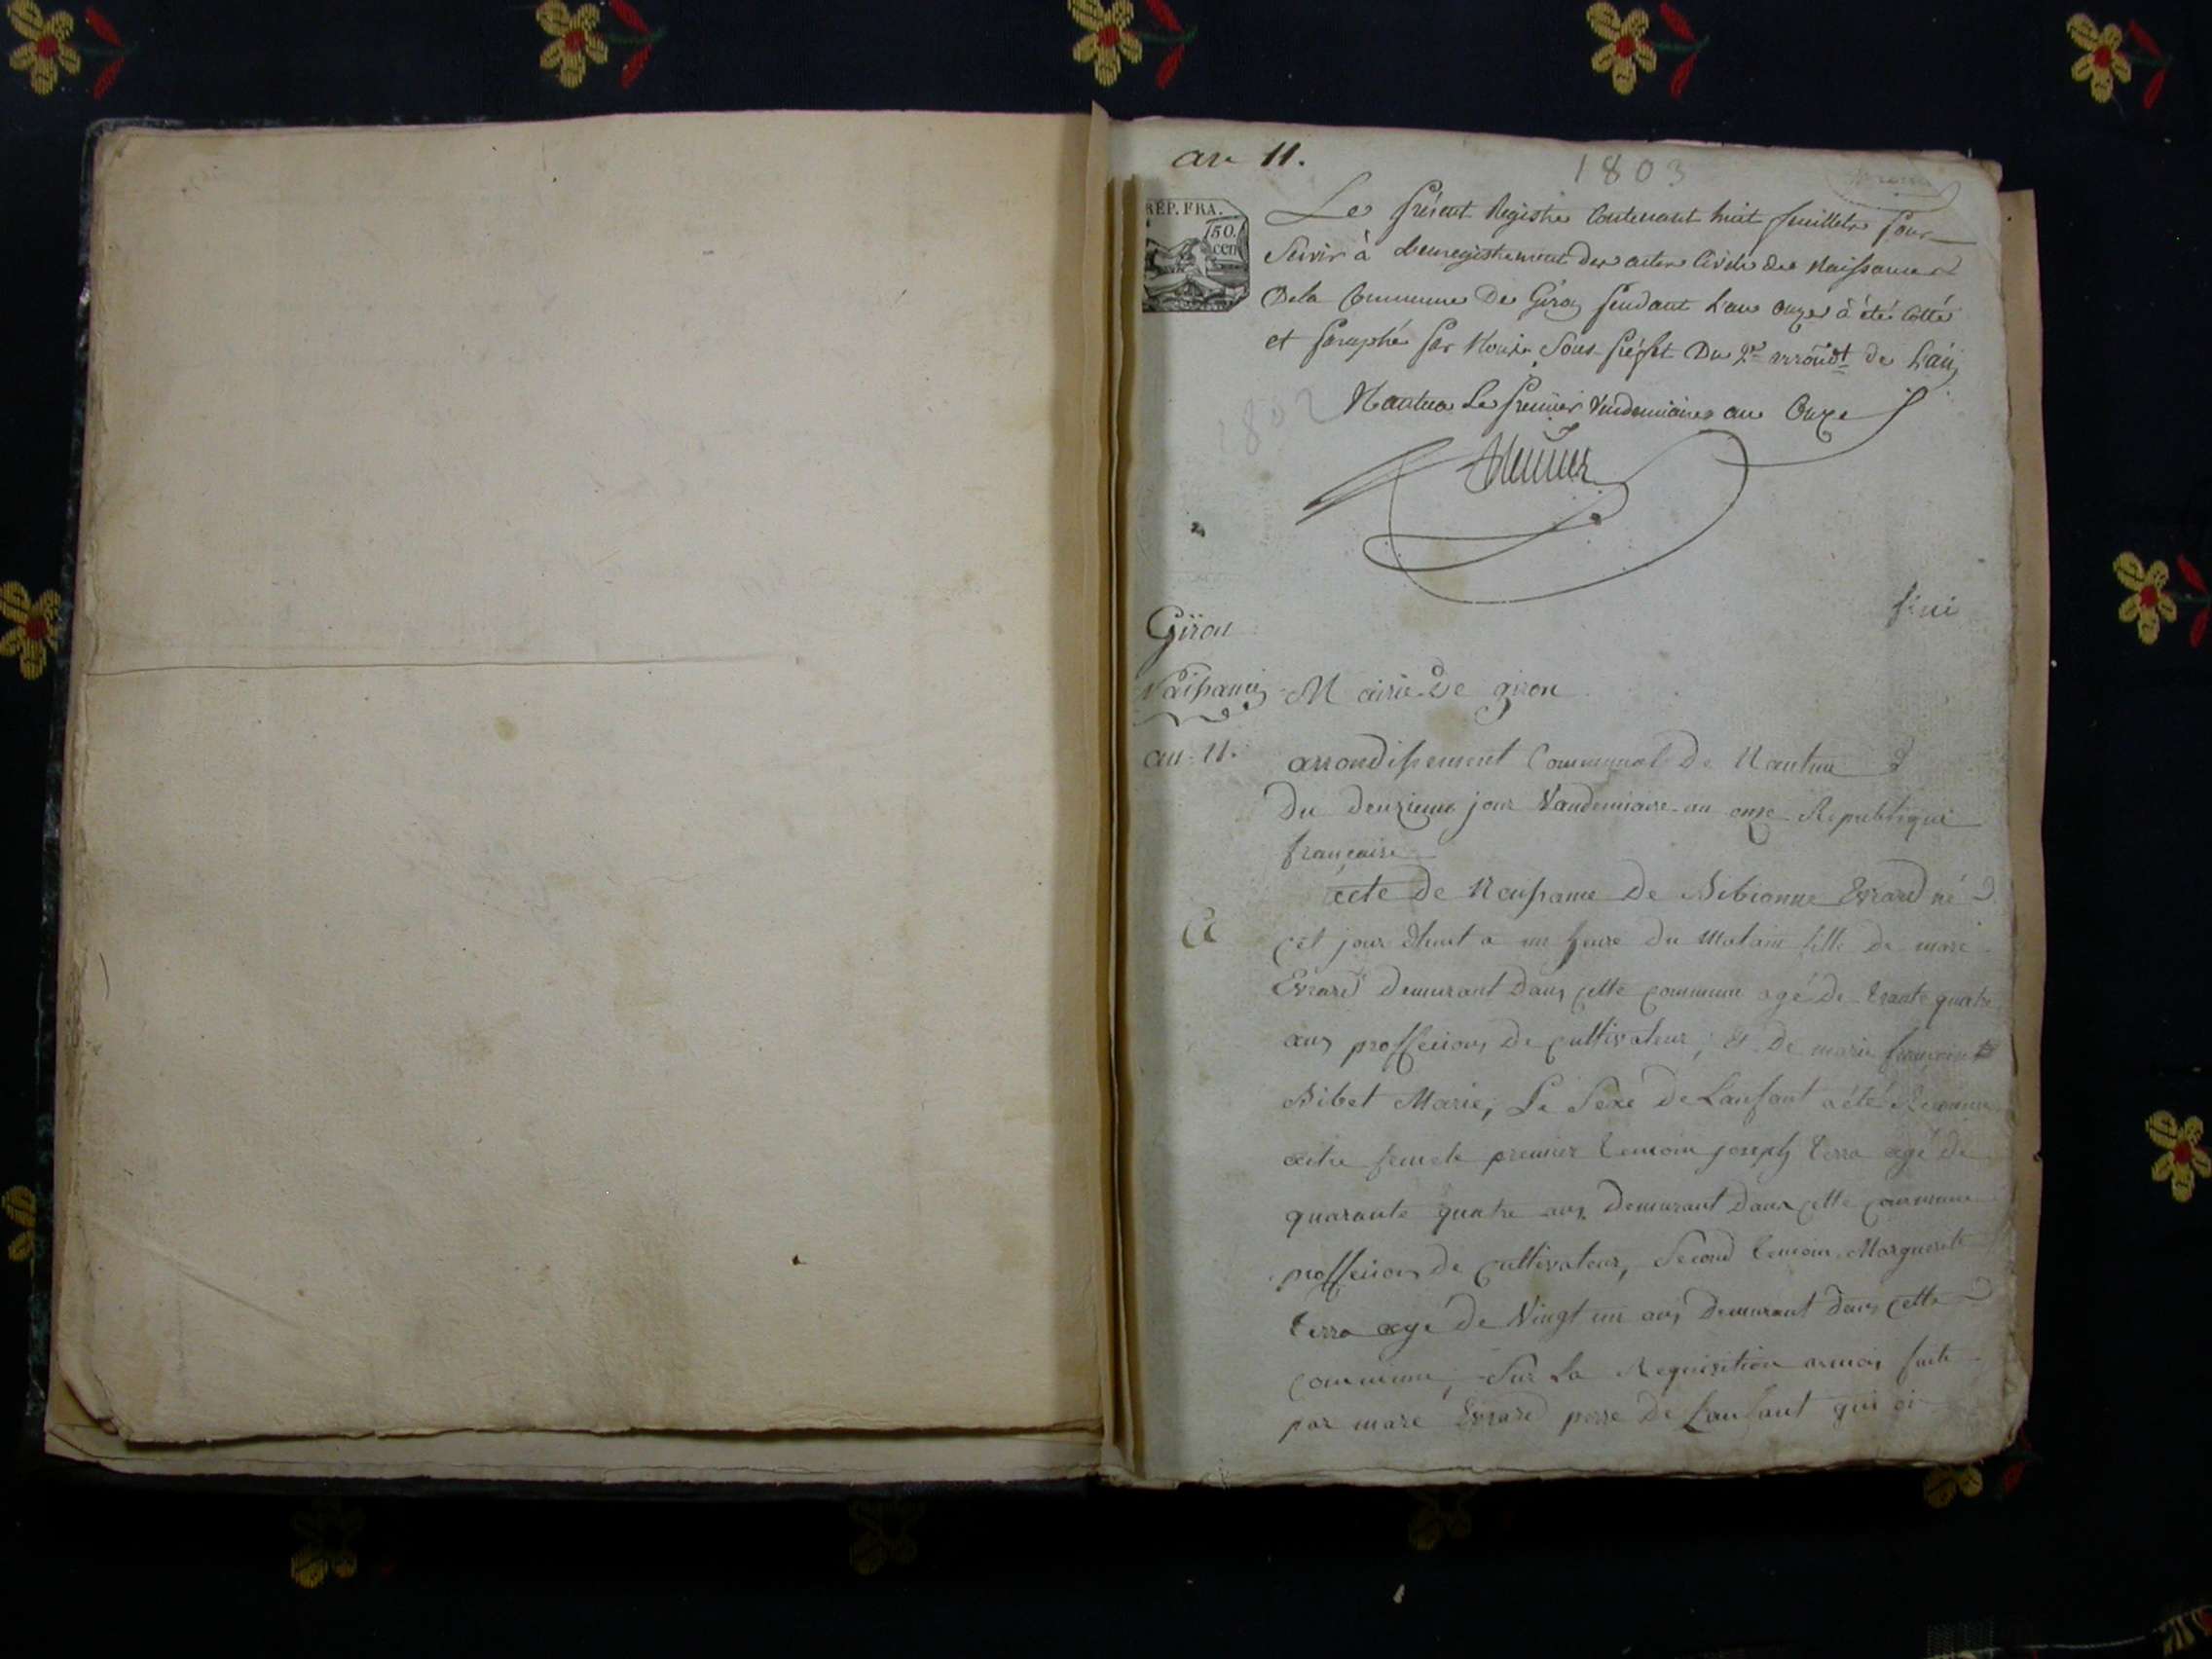 an 11.
1803
RÉP. FRA.
50.
cen
Le présent Registre Contenant huit feuillets pour
Servir à L'enregistrement des actes Civils de Naissances
De la Commune De Giron pendant L'an onze à été Cotté
et paraphé par Nous Sous-préfet Du 2e arrondt de L'ain
Nantua Le premier Vendemiaire an Onze
1802
fini
Giron
Naissances
Mairie De giron
an 11.
arrondissement Communal De Nantua
Du deuxieme jour Vandemiaire an onze Republique
française
acte De Naissance De Bibianne Evrard né
cet jour dhuit a un heure Du Matain fille De marc
Evrard Demurant Dans cette commune agé De trante quatre
ans proffession De cultivateur, Et De marie françoise
Bibet Marie, Le Sexe De Lanfant a été Reconnu
aitre femele premier temoin joseph terra agé de
quarante quatre ans Demurant Dans cette commune
proffession De cultivateur, Second temoin Marguerite
terra agé De Vingt un ans Demurant dans cette
commune, Sur La Requisition a moi faite
par marc Evrard perre De Lanfant qui